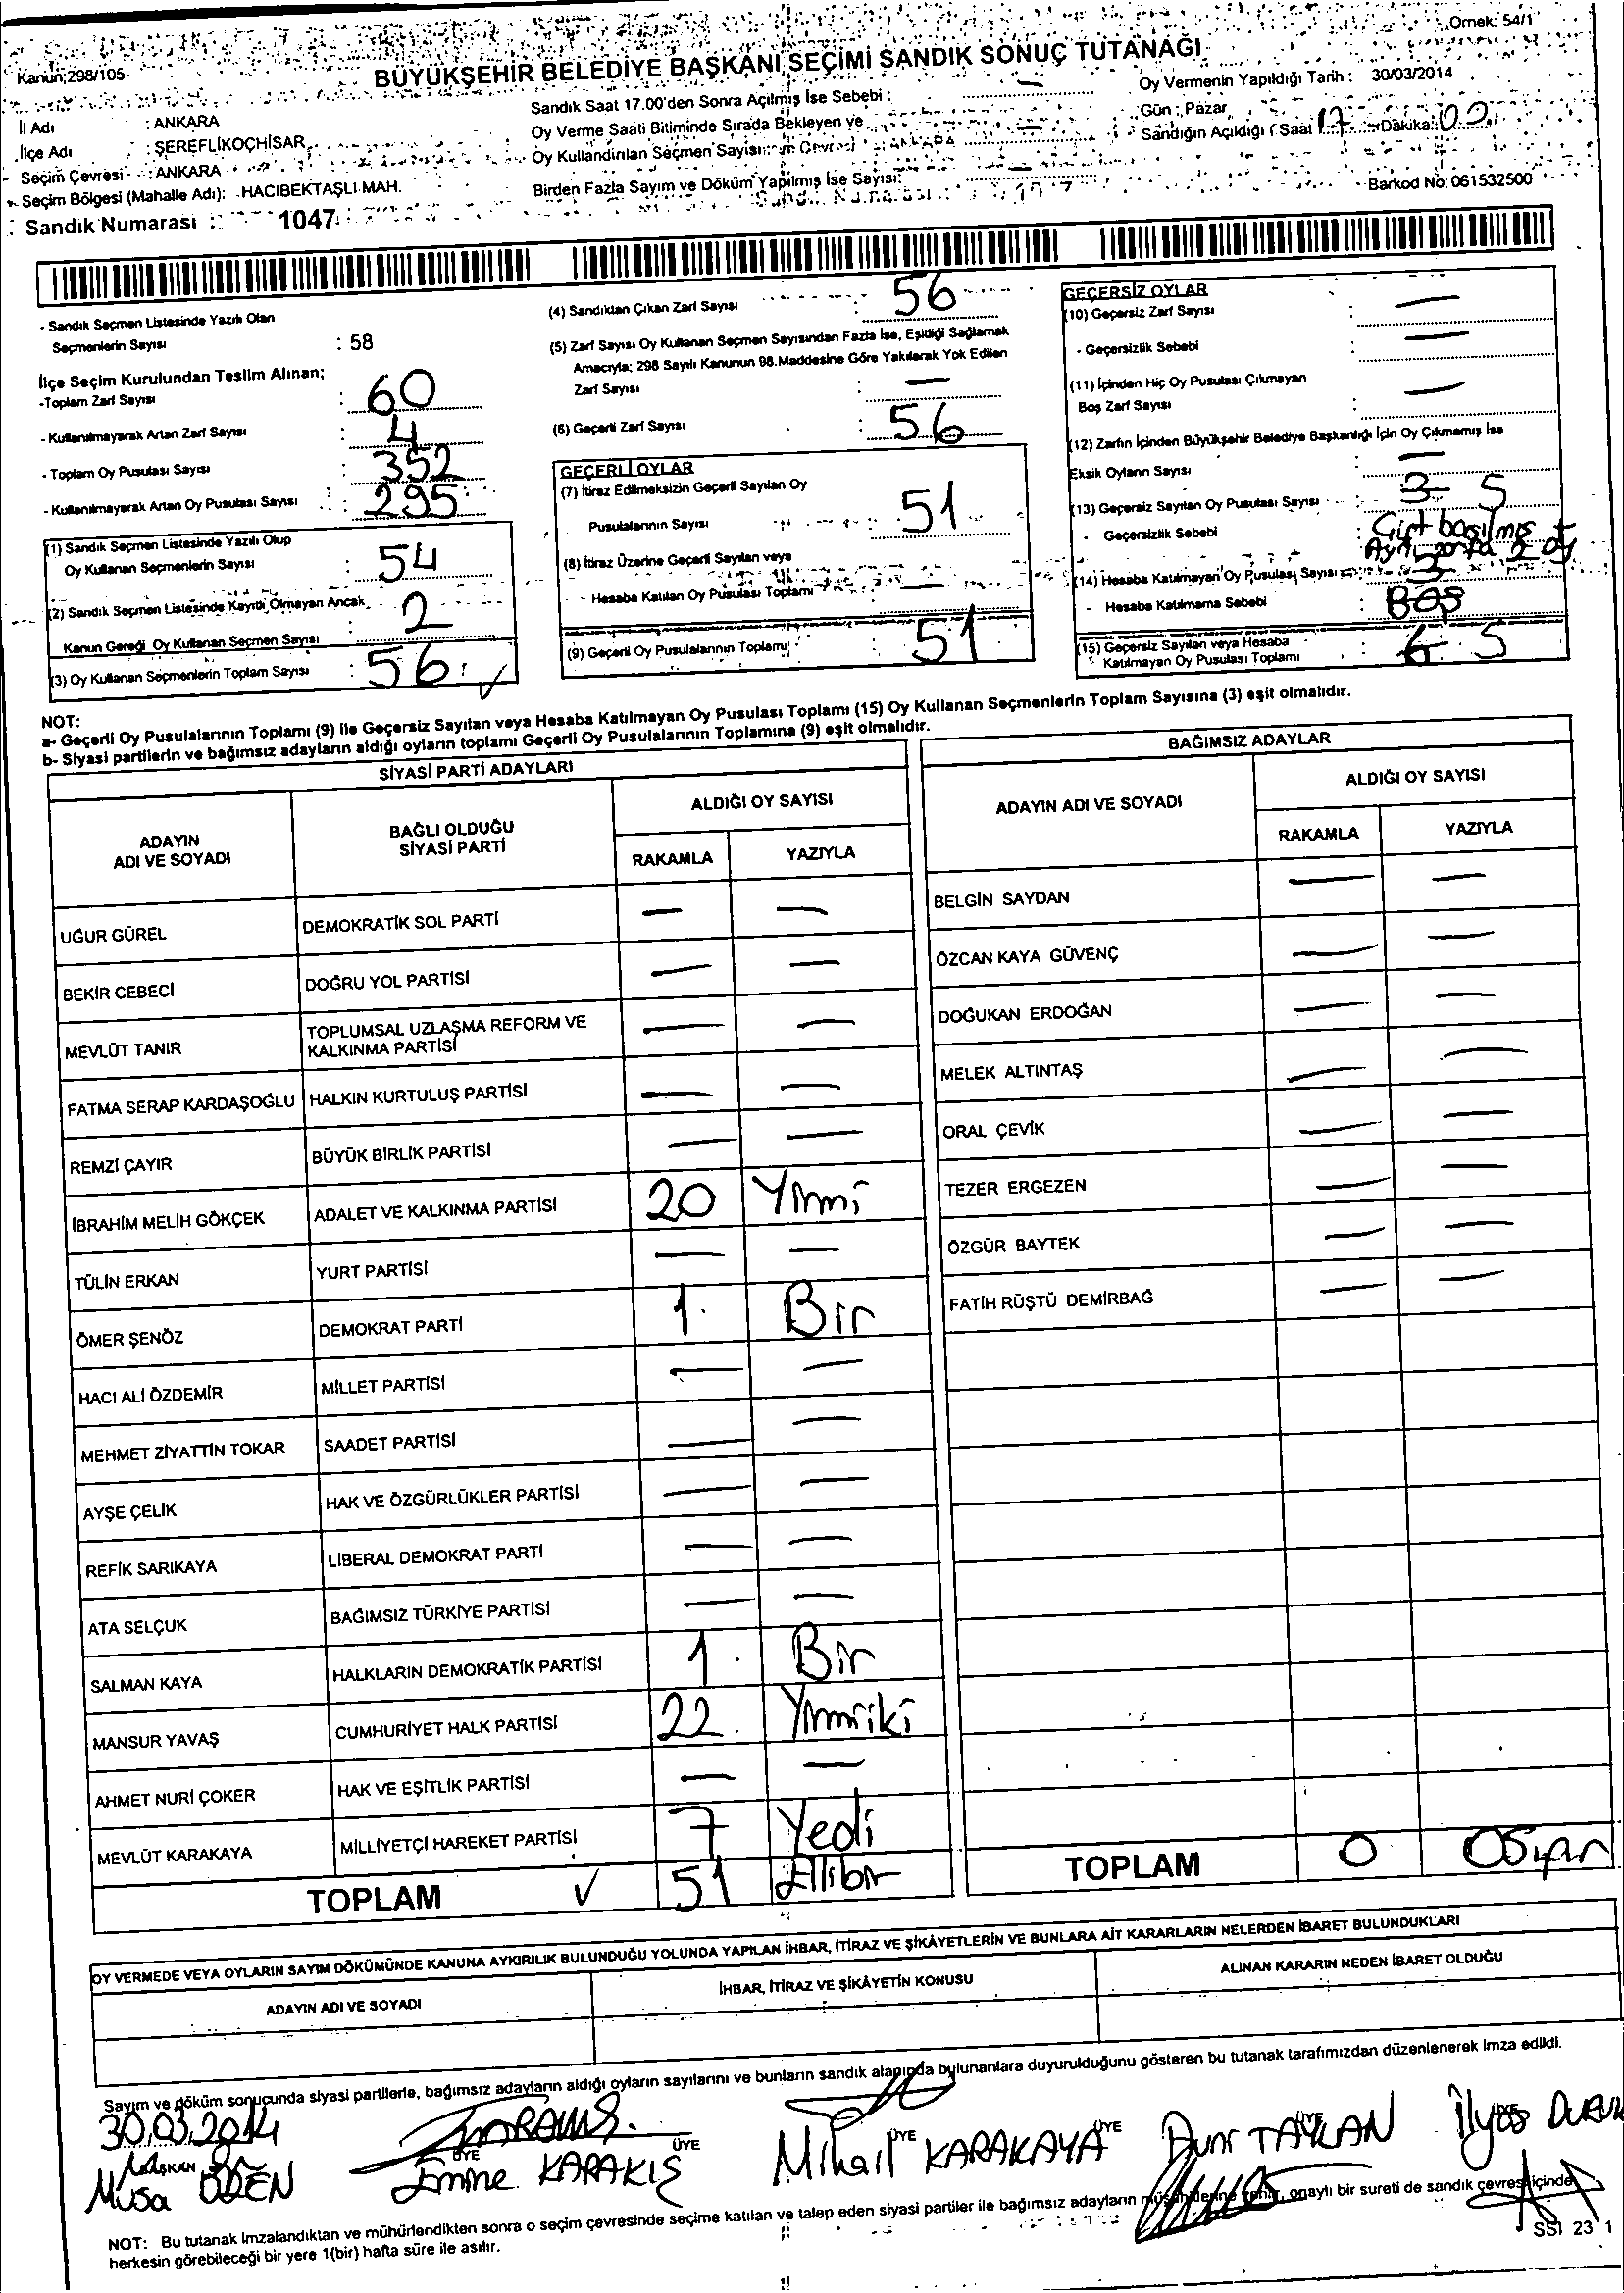 Örnek: 54/1
Kanun;298/105
BÜYÜKŞEHİR BELEDİYE BAŞKANI SEÇİMİ SANDIK SONUÇ TUTANAĞI
İl Adı : ANKARA
İlçe Adı : ŞEREFLİKOÇHİSAR
Seçim Çevresi : ANKARA
Seçim Bölgesi (Mahalle Adı): HACIBEKTAŞLI MAH.
Sandık Numarası : 1047
Sandık Saat 17.00'den Sonra Açılmış İse Sebebi : —
Oy Verme Saati Bitiminde Sırada Bekleyen ve
Oy Kullandırılan Seçmen Sayısı: —
Birden Fazla Sayım ve Döküm Yapılmış İse Sayısı: —
Oy Vermenin Yapıldığı Tarih : 30/03/2014
Gün : Pazar
Sandığın Açıldığı ( Saat 17 Dakika: 00
Barkod No: 061532500
- Sandık Seçmen Listesinde Yazılı Olan
Seçmenlerin Sayısı : 58
İlçe Seçim Kurulundan Teslim Alınan;
-Toplam Zarf Sayısı : 60
- Kullanılmayarak Artan Zarf Sayısı : 4
- Toplam Oy Pusulası Sayısı : 352
- Kullanılmayarak Artan Oy Pusulası Sayısı : 295
(1) Sandık Seçmen Listesinde Yazılı Olup
Oy Kullanan Seçmenlerin Sayısı : 54
(2) Sandık Seçmen Listesinde Kayıtlı Olmayan Ancak
Kanun Gereği Oy Kullanan Seçmen Sayısı : 2
(3) Oy Kullanan Seçmenlerin Toplam Sayısı : 56 ✓
(4) Sandıktan Çıkan Zarf Sayısı : 56
(5) Zarf Sayısı Oy Kullanan Seçmen Sayısından Fazla İse, Eşitliği Sağlamak
Amacıyla; 298 Sayılı Kanunun 98.Maddesine Göre Yakılarak Yok Edilen
Zarf Sayısı : —
(6) Geçerli Zarf Sayısı : 56
GEÇERLİ OYLAR
(7) İtiraz Edilmeksizin Geçerli Sayılan Oy
Pusulalarının Sayısı : 51
(8) İtiraz Üzerine Geçerli Sayılan veya
Hesaba Katılan Oy Pusulası Toplamı : —
(9) Geçerli Oy Pusulalarının Toplamı : 51
GEÇERSİZ OYLAR
(10) Geçersiz Zarf Sayısı : —
- Geçersizlik Sebebi : —
(11) İçinden Hiç Oy Pusulası Çıkmayan
Boş Zarf Sayısı : —
(12) Zarfın İçinden Büyükşehir Belediye Başkanlığı İçin Oy Çıkmamış İse
Eksik Oyların Sayısı : —
(13) Geçersiz Sayılan Oy Pusulası Sayısı 3 5
- Geçersizlik Sebebi : Çift basılmış
(14) Hesaba Katılmayan Oy Pusulası Sayısı : 3
- Hesaba Katılmama Sebebi : Boş
(15) Geçersiz Sayılan veya Hesaba
Katılmayan Oy Pusulası Toplamı : 6 5
NOT:
a- Geçerli Oy Pusulalarının Toplamı (9) ile Geçersiz Sayılan veya Hesaba Katılmayan Oy Pusulası Toplamı (15) Oy Kullanan Seçmenlerin Toplam Sayısına (3) eşit olmalıdır.
b- Siyasi partilerin ve bağımsız adayların aldığı oyların toplamı Geçerli Oy Pusulalarının Toplamına (9) eşit olmalıdır.
SİYASİ PARTİ ADAYLARI
ADAYIN ADI VE SOYADI BAĞLI OLDUĞU SİYASİ PARTİ ALDIĞI OY SAYISI
RAKAMLA YAZIYLA
UĞUR GÜREL DEMOKRATİK SOL PARTİ — —
BEKİR CEBECİ DOĞRU YOL PARTİSİ — —
MEVLÜT TANIR TOPLUMSAL UZLAŞMA REFORM VE KALKINMA PARTİSİ — —
FATMA SERAP KARDAŞOĞLU HALKIN KURTULUŞ PARTİSİ — —
REMZİ ÇAYIR BÜYÜK BİRLİK PARTİSİ — —
İBRAHİM MELİH GÖKÇEK ADALET VE KALKINMA PARTİSİ 20 Yirmi
TÜLİN ERKAN YURT PARTİSİ — —
ÖMER ŞENÖZ DEMOKRAT PARTİ 1. Bir
HACI ALİ ÖZDEMİR MİLLET PARTİSİ — —
MEHMET ZİYATTİN TOKAR SAADET PARTİSİ — —
AYŞE ÇELİK HAK VE ÖZGÜRLÜKLER PARTİSİ — —
REFİK SARIKAYA LİBERAL DEMOKRAT PARTİ — —
ATA SELÇUK BAĞIMSIZ TÜRKİYE PARTİSİ — —
SALMAN KAYA HALKLARIN DEMOKRATİK PARTİSİ 1. Bir
MANSUR YAVAŞ CUMHURİYET HALK PARTİSİ 22. Yirmiiki
AHMET NURİ ÇOKER HAK VE EŞİTLİK PARTİSİ — —
MEVLÜT KARAKAYA MİLLİYETÇİ HAREKET PARTİSİ 7 Yedi
TOPLAM ✓ 51 Ellibir
BAĞIMSIZ ADAYLAR
ADAYIN ADI VE SOYADI ALDIĞI OY SAYISI
RAKAMLA YAZIYLA
BELGİN SAYDAN — —
ÖZCAN KAYA GÜVENÇ — —
DOĞUKAN ERDOĞAN — —
MELEK ALTINTAŞ — —
ORAL ÇEVİK — —
TEZER ERGEZEN — —
ÖZGÜR BAYTEK — —
FATİH RÜŞTÜ DEMİRBAĞ — —
TOPLAM 0 Sıfır
OY VERMEDE VEYA OYLARIN SAYIM DÖKÜMÜNDE KANUNA AYKIRILIK BULUNDUĞU YOLUNDA YAPILAN İHBAR, İTİRAZ VE ŞİKÂYETLERİN VE BUNLARA AİT KARARLARIN NELERDEN İBARET BULUNDUKLARI
ADAYIN ADI VE SOYADI İHBAR, İTİRAZ VE ŞİKÂYETİN KONUSU ALINAN KARARIN NEDEN İBARET OLDUĞU
Sayım ve döküm sonucunda siyasi partilerle, bağımsız adayların aldığı oyların sayılarını ve bunların sandık alanında bulunanlara duyurulduğunu gösteren bu tutanak tarafımızdan düzenlenerek imza edildi.
30.03.2014
BAŞKAN ÜYE ÜYE ÜYE ÜYE ÜYE
Musa ÖDEN Emine KARAKIŞ Mihail KARAKAYA TAYLAN İlyas
NOT: Bu tutanak imzalandıktan ve mühürlendikten sonra o seçim çevresinde seçime katılan ve talep eden siyasi partiler ile bağımsız adayların onaylı bir sureti de sandık çevresi içinde
herkesin görebileceği bir yere 1(bir) hafta süre ile asılır.
SSI 23 1